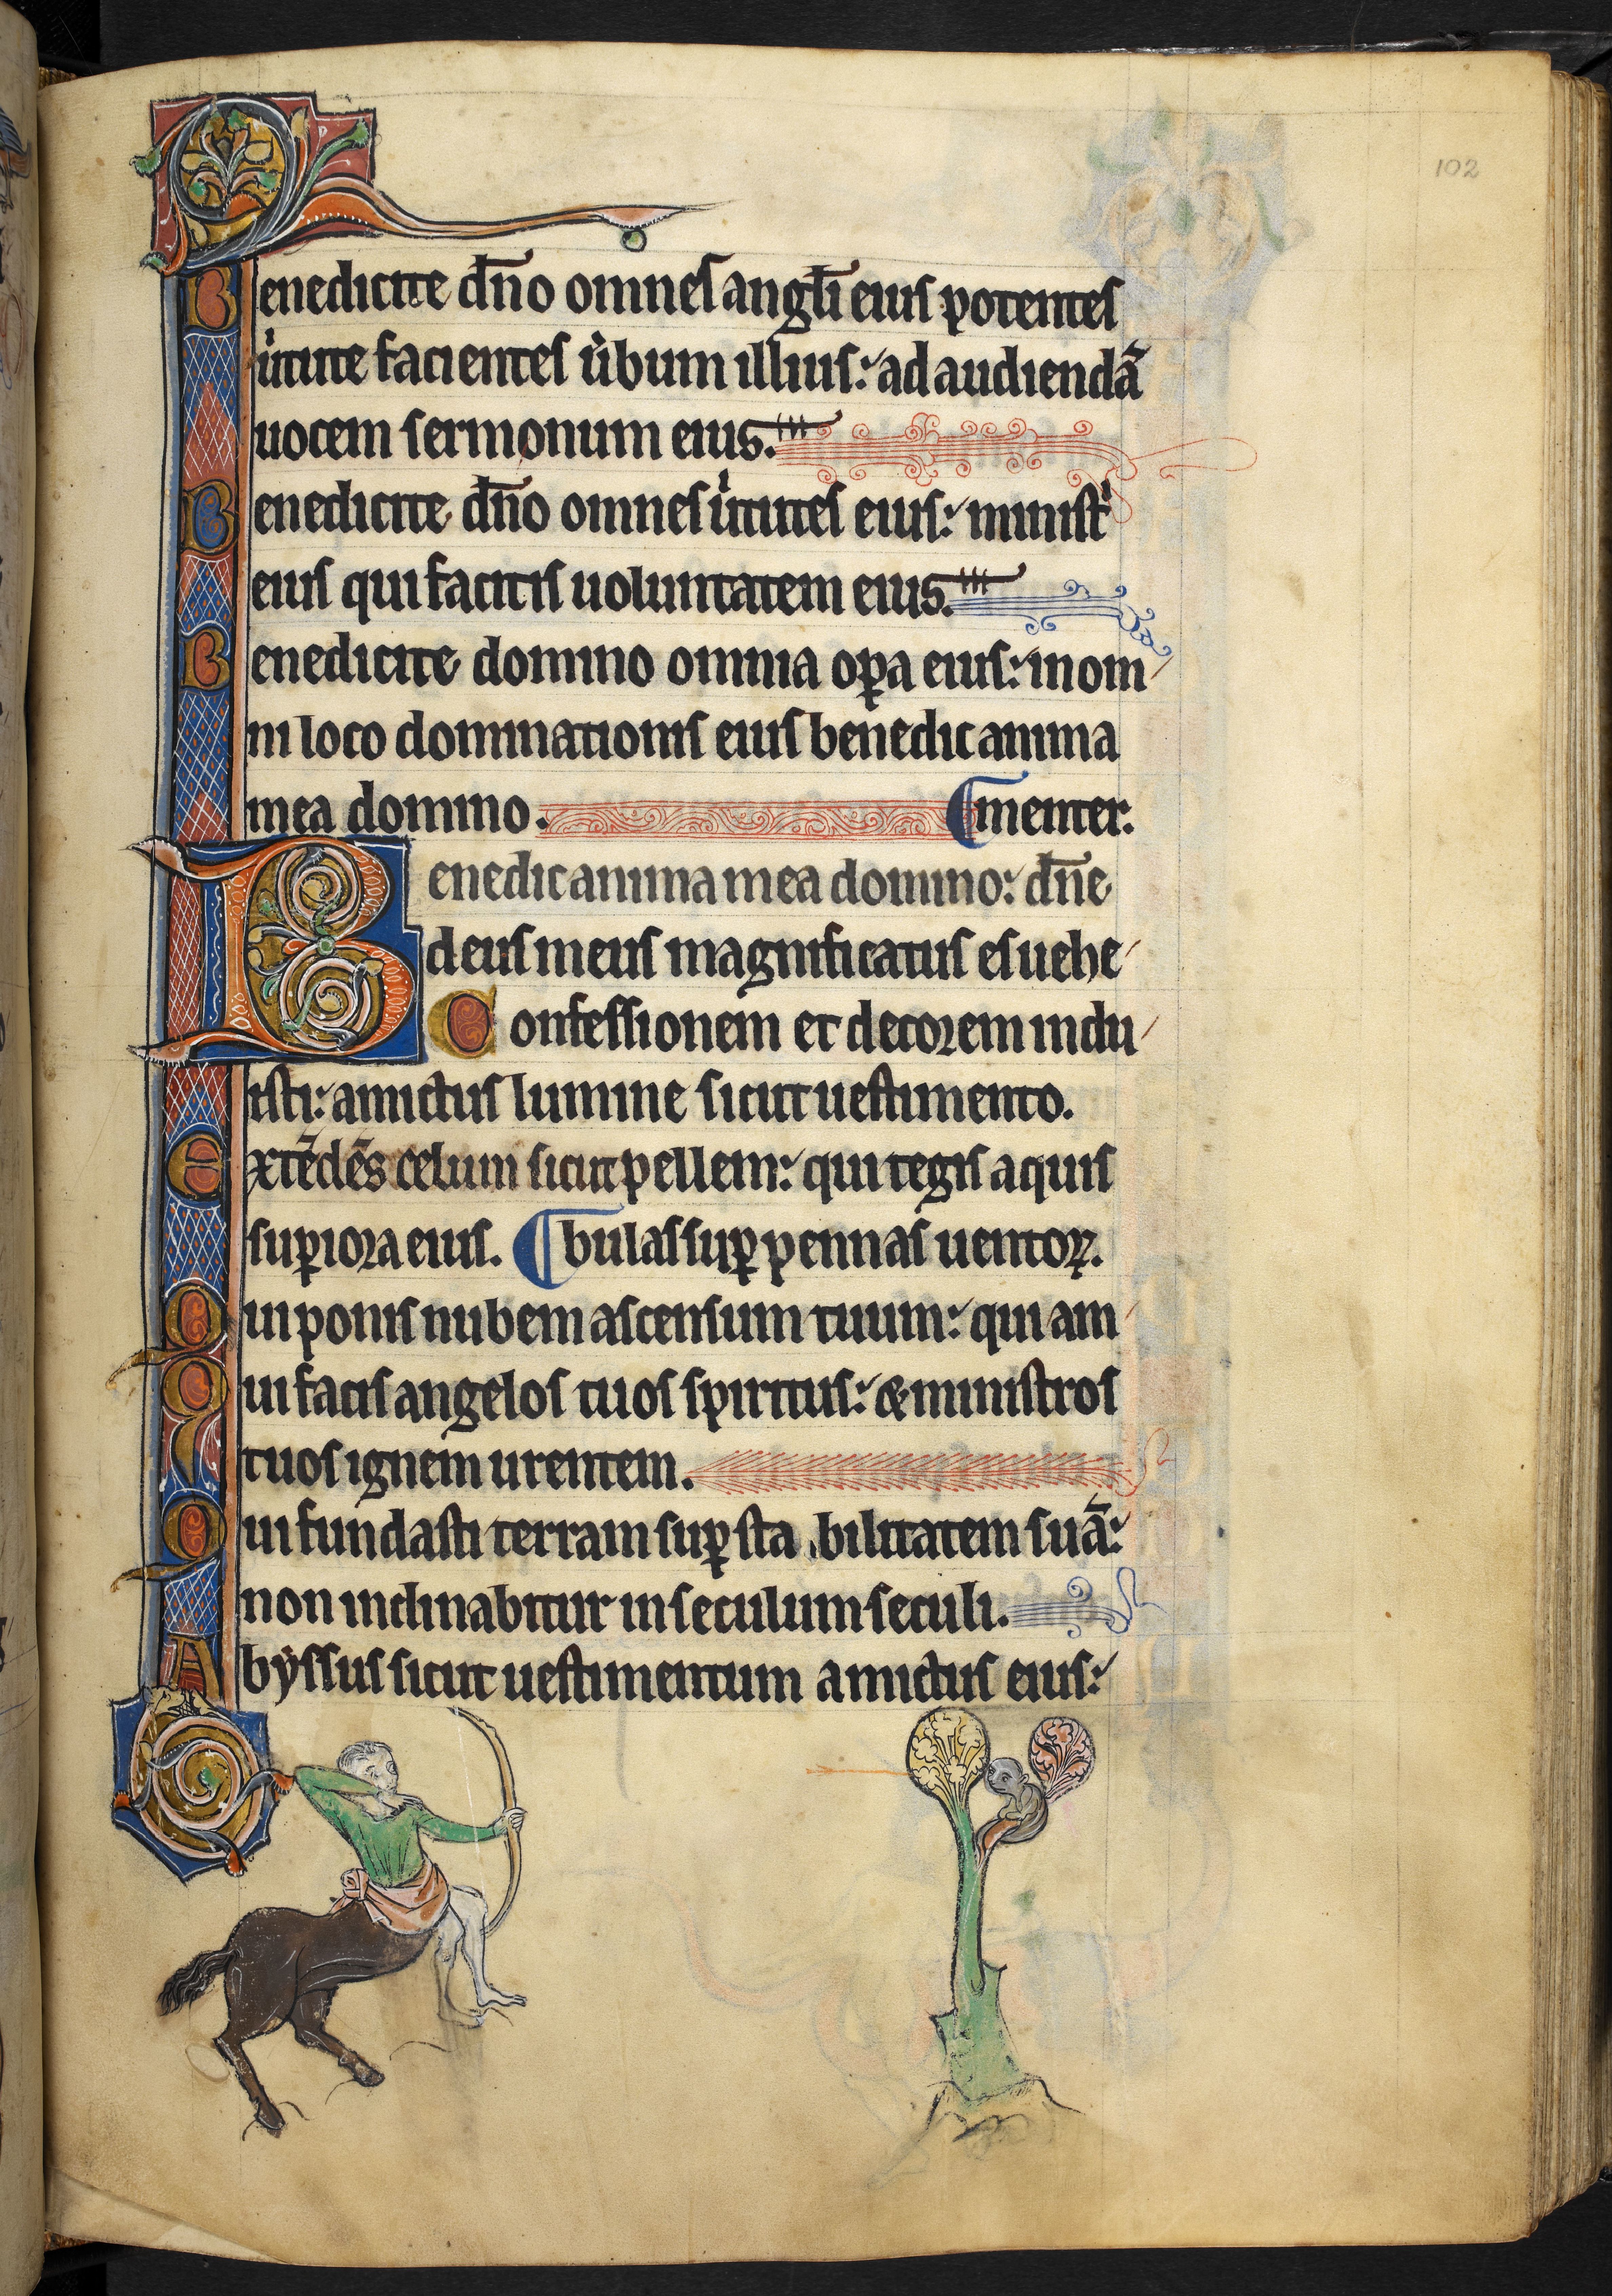 102
Benedicite dn̄o omnes angl̄i eius potentes
uͥtute facientes uͥbum illius: ad audiendā
uocem sermonum eius.
Benedicite dn̄o omnes uͥtutes eius: ministͥ
eius qui facitis uoluntatem eius.
Benedicite domino omnia oꝑa eius: in om
ni loco dominationis eius benedic anima
mea domino. menter.
Benedic anima mea domino: dn̄e
deus meus magnificatus es uehe
Confessionem et decorem indu
isti: amictus lumine sicut uestimento.
Extēdēs celum sicut pellem: qui tegis aquis
suꝑiora eius. bulas suꝑ pennas uentoꝝ.
Qui ponis nubem ascensum tuum: qui am
Qui facis angelos tuos spiritus: & ministros
tuos ignem urentem.
Qui fundasti terram suꝑ sta bilitatem suā:
non inclinabitur in seculum seculi.
Abẏssus sicut uestimentum amictus eius: